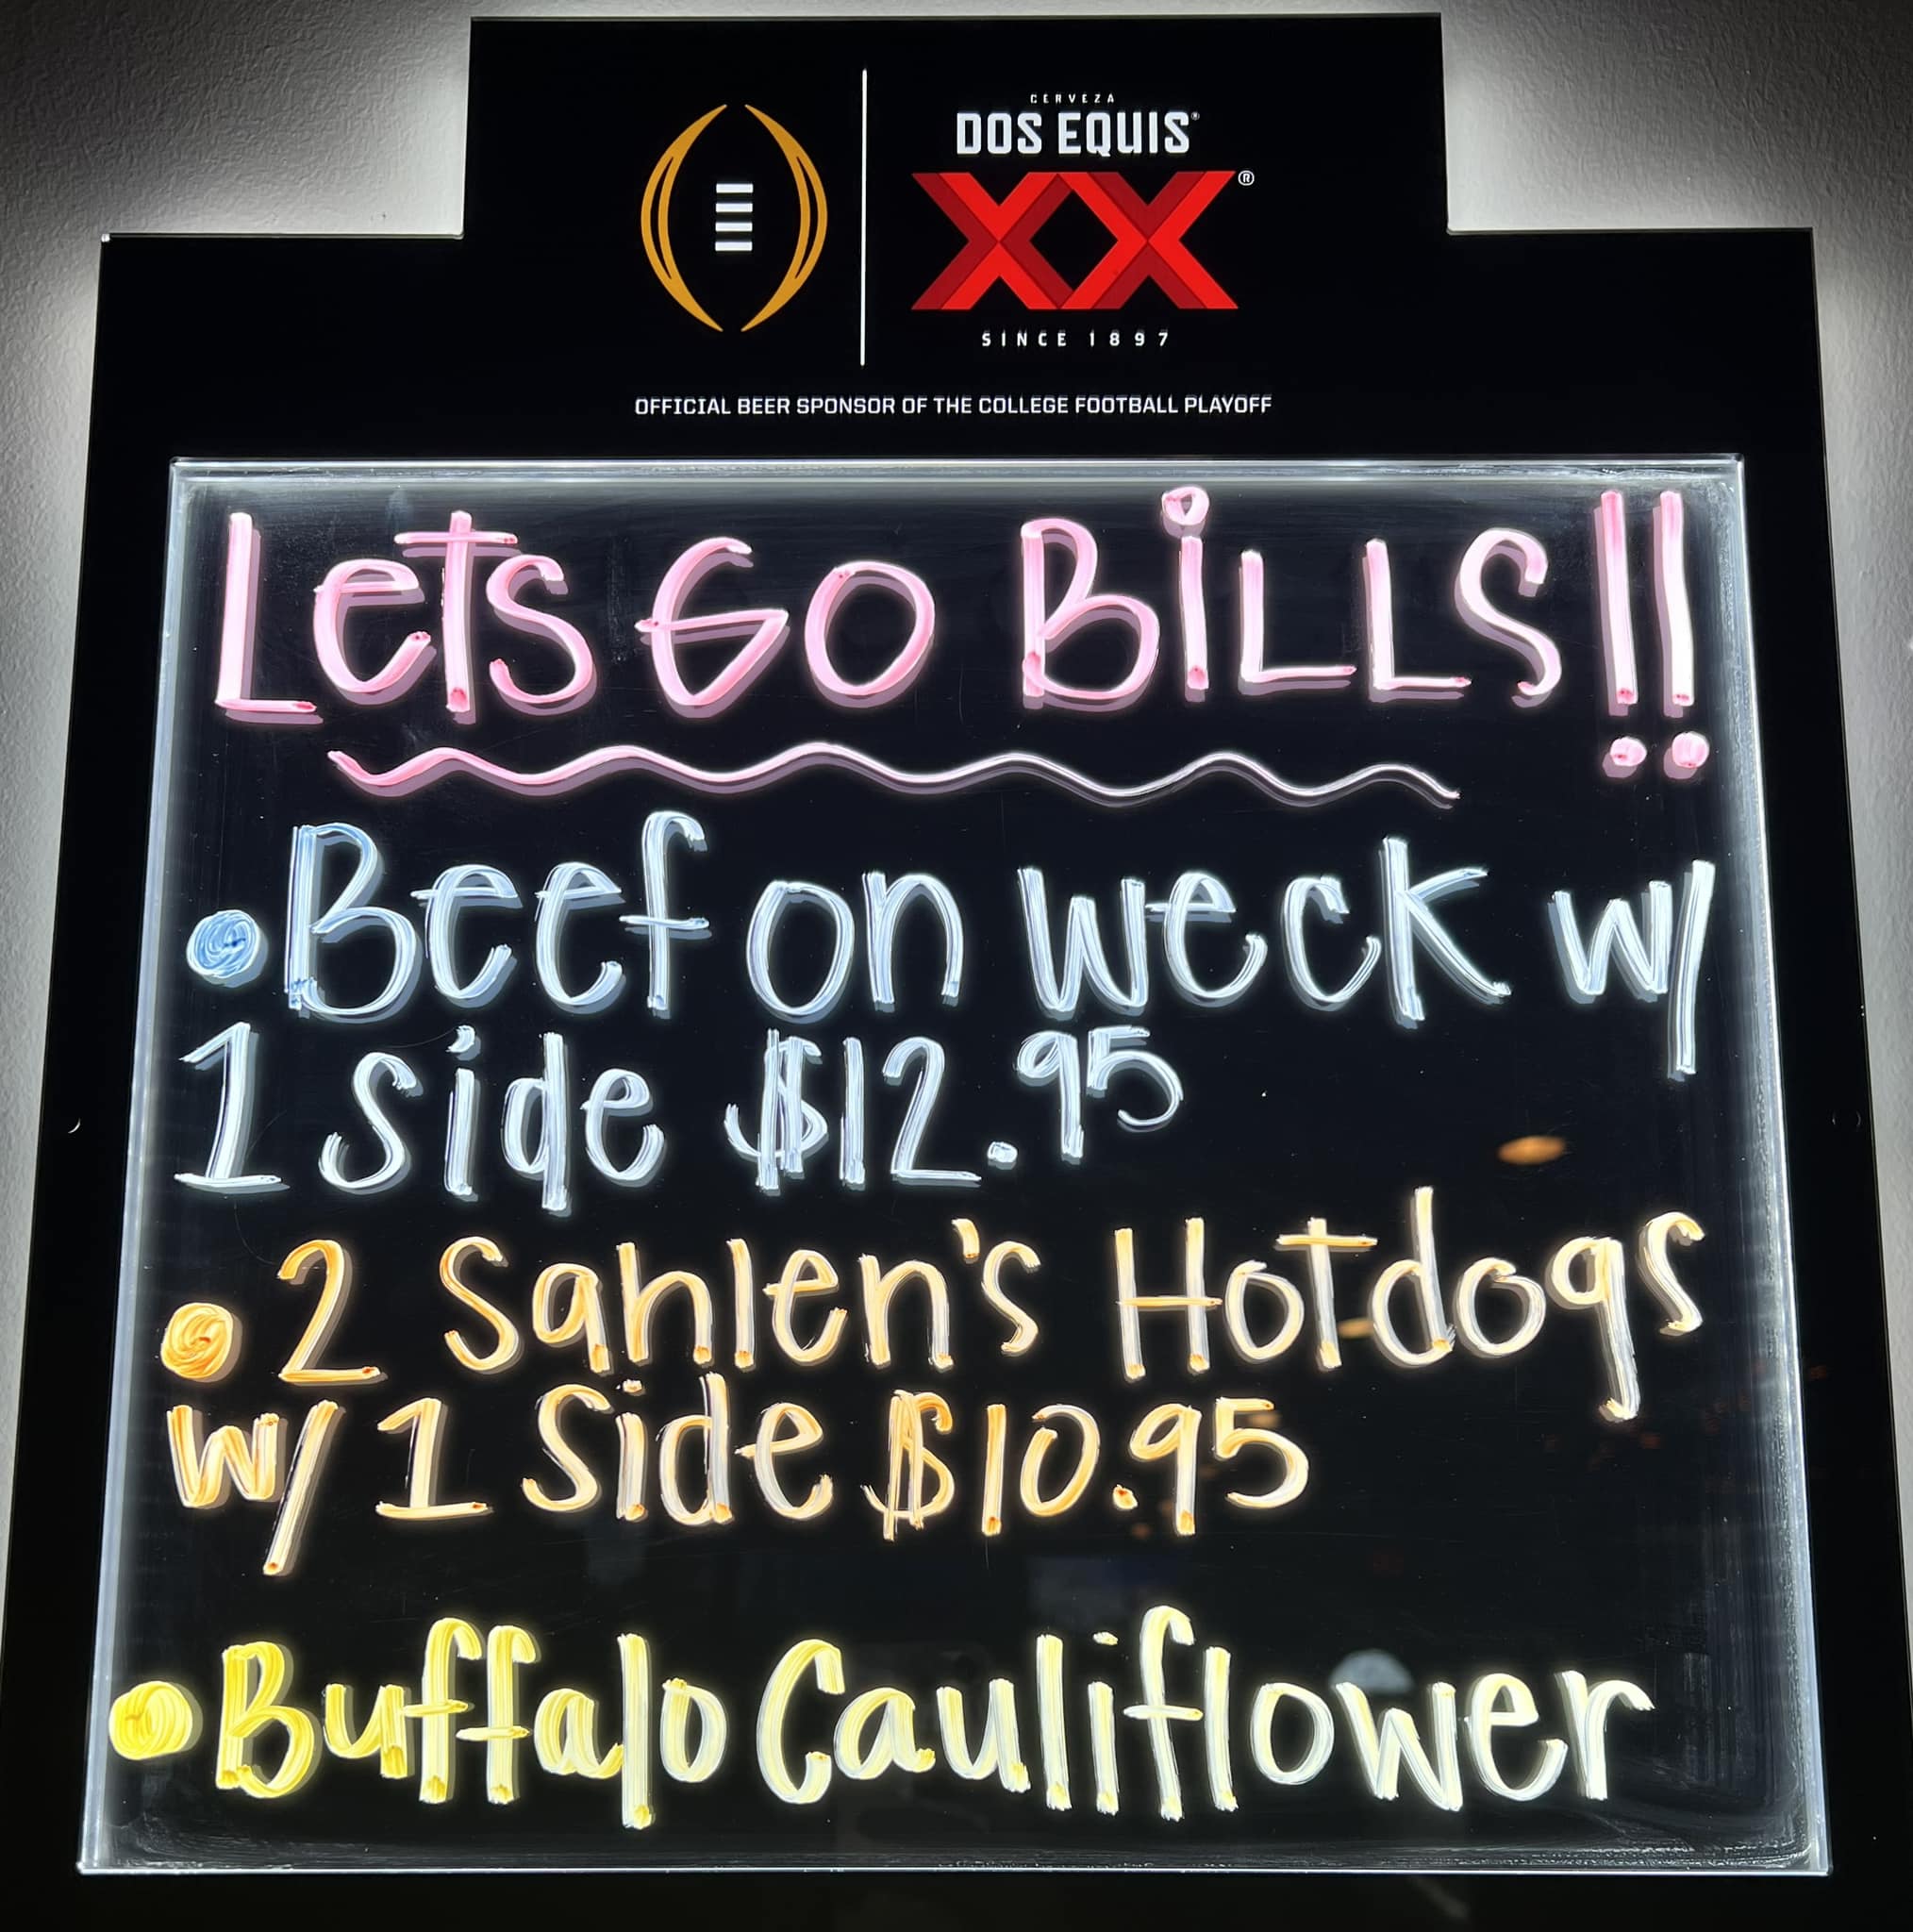 CERVEZA
DOS EQUIS®
XX®
SINCE 1897
OFFICIAL BEER SPONSOR OF THE COLLEGE FOOTBALL PLAYOFF
Lets GO BiLLS!!
•Beef on weck w/
1 side $12.95
•2 Sahlen's Hotdogs
w/ 1 Side $10.95
•Buffalo Cauliflower